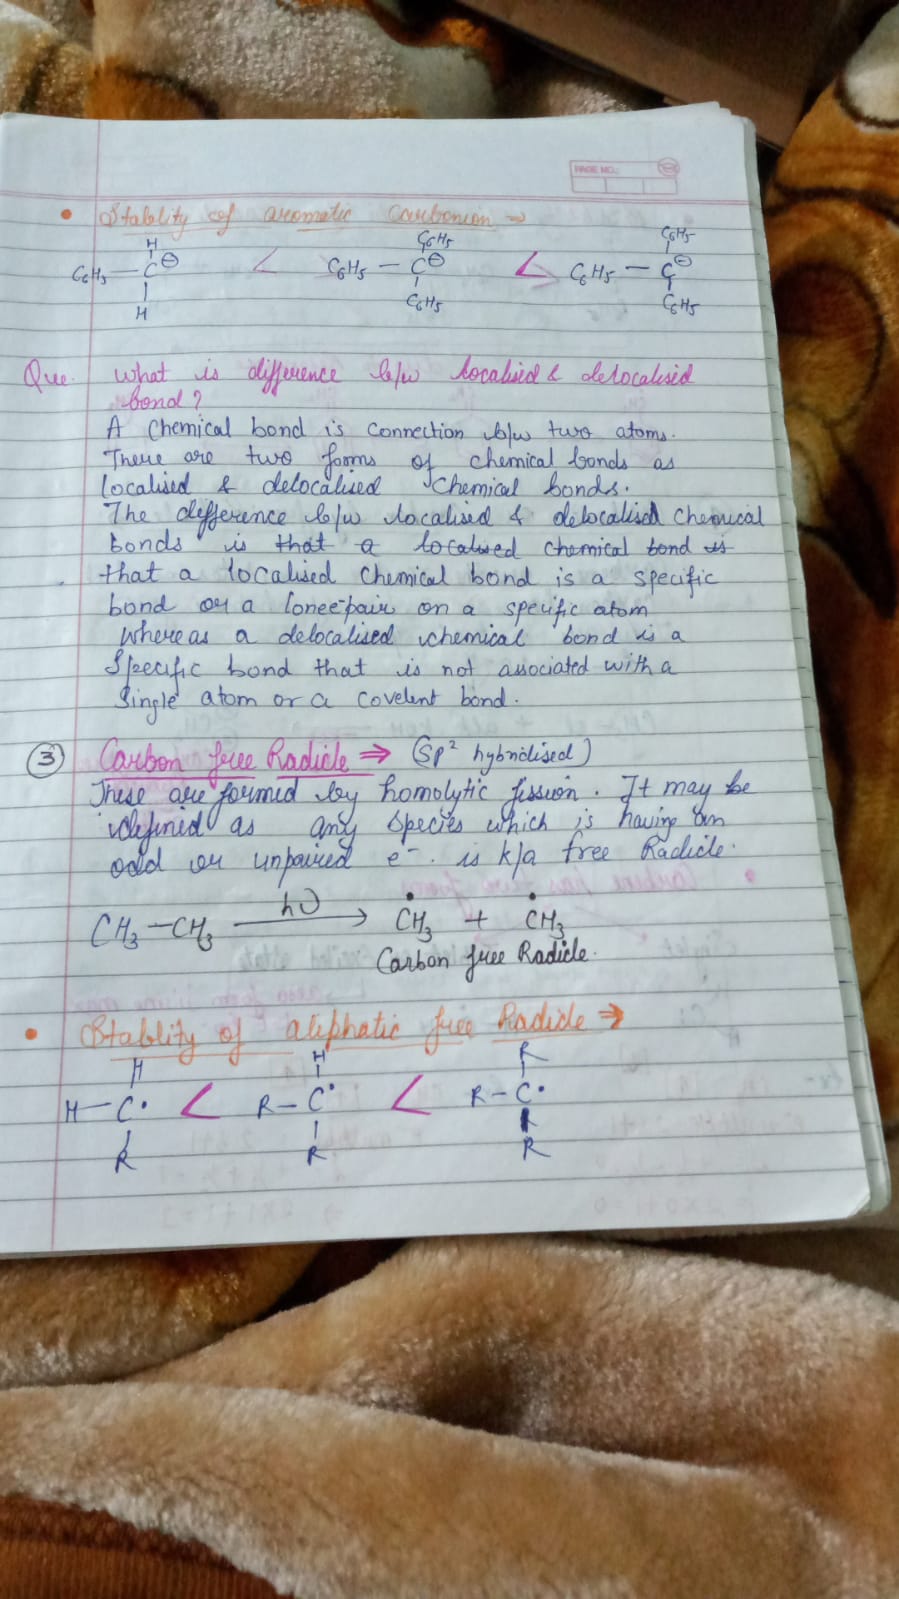 PAGE NO.:
• Stablity of aromatic Carbonion ⇒
H C6H5 C6H5
C6H5 — C⊖ < C6H5 — C⊖ < C6H5 — C⊖
H C6H5 C6H5
Que. What is difference b/w localised & delocalised
bond?
A Chemical bond is connection b/w two atoms.
There are two forms of chemical bonds as
localised & delocalised chemical bonds.
The difference b/w localised & delocalised chemical
bonds is that a localised chemical bond is
that a localised chemical bond is a specific
bond or a lonee-pair on a specific atom
Whereas a delocalised chemical bond is a
Specific bond that is not associated with a
Single atom or a covelent bond.
③ Carbon free Radicle ⇒ (Sp² hybridised)
These are formed by homolytic fission. It may be
defined as any species which is having an
odd or unpaired e⁻. is k/a free Radicle.
CH3—CH3 hν → ĊH3 + ĊH3
Carbon free Radicle.
• Stablity of aliphatic free Radicle ⇒
H H R
H—C• < R—C• < R—C•
R R R